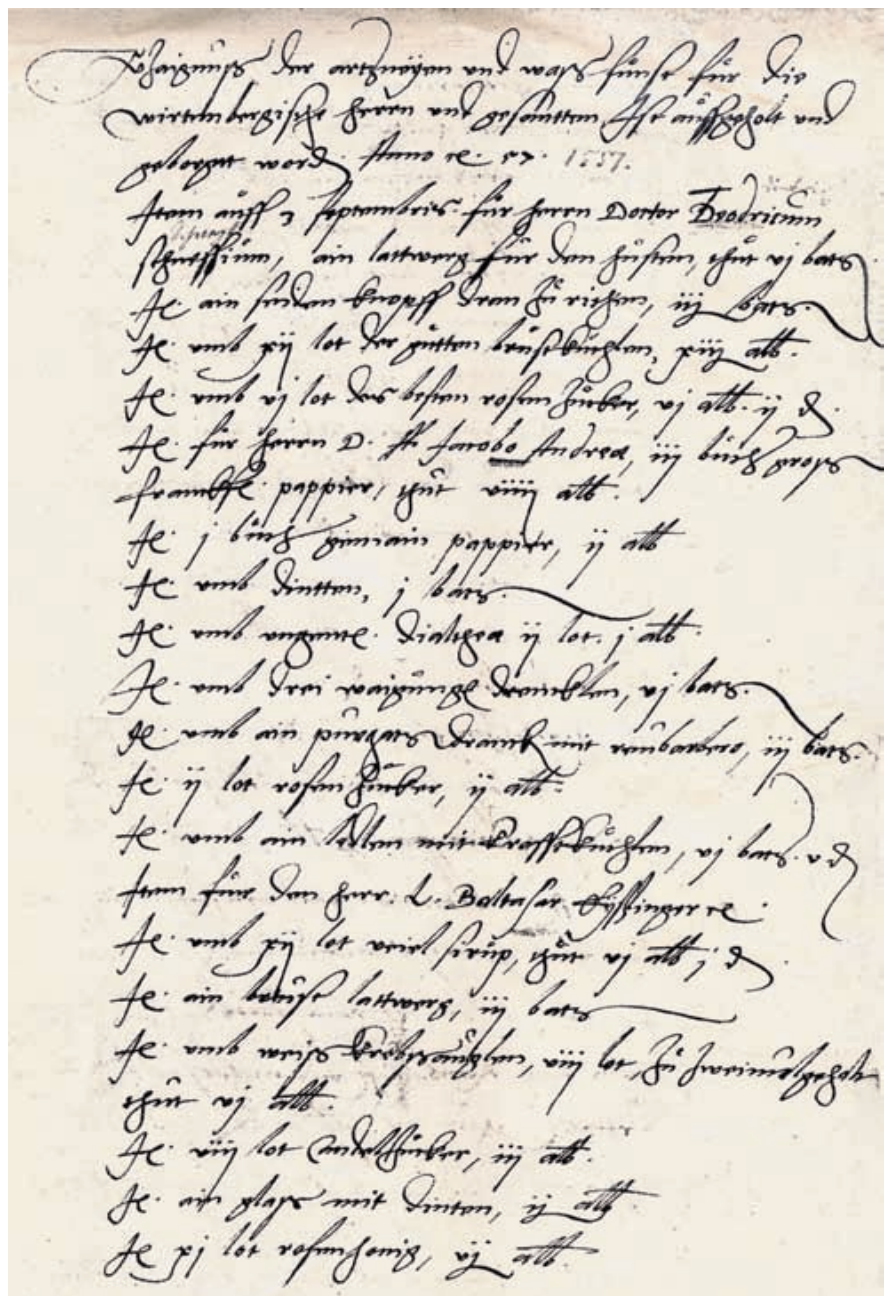 Verzaignuss der artzneyen und wass sunst für die
wirtembergische herrn und gesantten ist aussgeholt und
geborgt word. Anno etc. 57. 1557.
Item auff 3 septembris für herrn Doctor Deodricum
schnepffium, ain lattwerg für den husten, thut vj bats
It. ain seiden knopff dran zu richen, iij bats.
It. umb xij lot der gutten brustkuchlen, xiij alb.
It. umb vj lot des besten rosenzucker, vj alb. ij d.
It. für herrn D. Jacobo Andreæ, iij buch gross
franckf. pappier, thut viiij alb.
It. j buch gemain pappier, ij alb
It. umb dintten, j bats.
It. umb unguent. dialthea ij lot. j alb.
It. umb drei dreincklen, vj bats.
It. umb ain purgats dranck mit reubarbero, iij bats.
It. ij lot rosenzucker, ij alb.
It. umb ain ledlen mit krafftkuchlen, vj bats. v d
Item für den herr. L. Baltasar etc.
It. umb xij lot veiel sirup, thut vj alb j d.
It. ain brust lattwerg, iij bats
It. umb weiss krebsaüglen, viij lot, zu zweimal geholt
thut vj alb.
It. viij lot Candelzucker, iij alb.
It. ain glass mit dinten, ij alb
It. xj lot rosenhonig, vij alb.